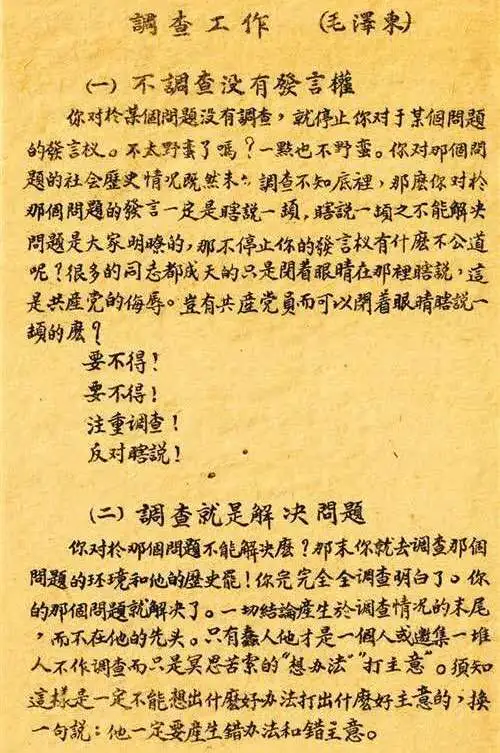 調查工作　(毛澤東)
(一)不調查没有發言權
你对於某個問題没有調查，就停止你对于某個問題
的發言权。不太野蛮了嗎？一點也不野蛮。你对那個問
題的社会歷史情况既然未　調查不知底裡，那麽你对於
那個問題的發言一定是瞎説一頓，瞎説一頓之不能解决
問題是大家明瞭的，那不停止你的發言权有什麽不公道
呢？很多的同志都成天的只是閉着眼睛在那裡瞎説，這
是共産党的侮辱。豈有共産党員而可以閉着眼睛瞎説一
頓的麽？
要不得！
要不得！
注重调查！
反对瞎説！
(二)調查就是解决問題
你对於那個問題不能解决麽？那末你就去調查那個
問題的环境和他的歷史罷！你完完全全調查明白了。你
的那個問題就解决了。一切結論産生於調查情况的末尾
，而不在他的先头。只有蠢人他才是一個人或邀集一堆
人不作調查而只是冥思苦索的“想办法”“打主意”。須知
這樣是一定不能想出什麽好办法打出什麽好主意的，換
一句説：他一定要産生錯办法和錯主意。